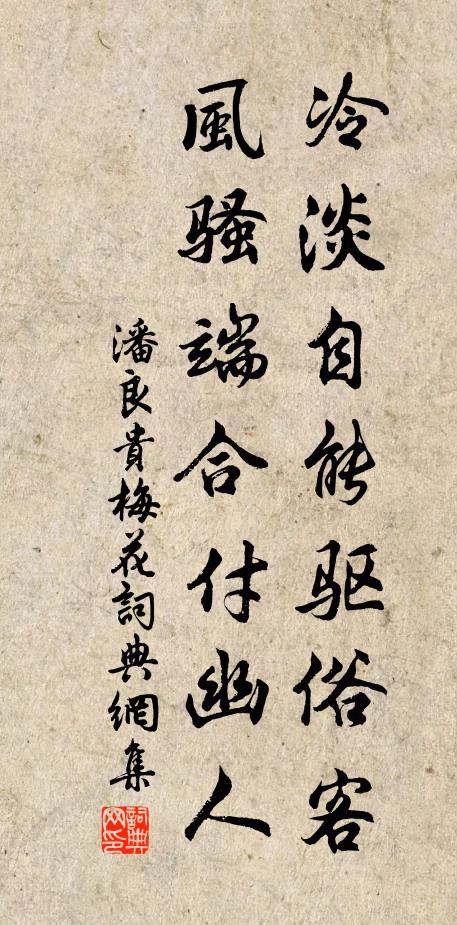 冷淡自能驱俗客
風騷端合付幽人
潘良貴梅花詞典網集
詞典网印